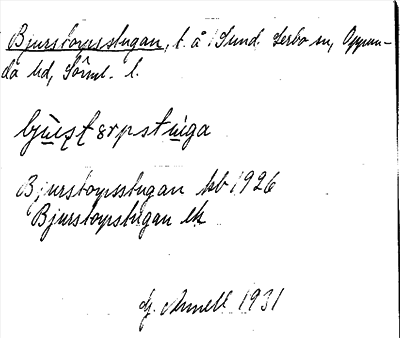 Bjurstorpsstugan, t. å Sund. Lerbo sn, Oppun-
da hd, Söml. l.
bjùṣṭorpstùga
Bjurstorpsstugan kb 1926
Bjurstorpstugan ek
Hj. Annell 1931